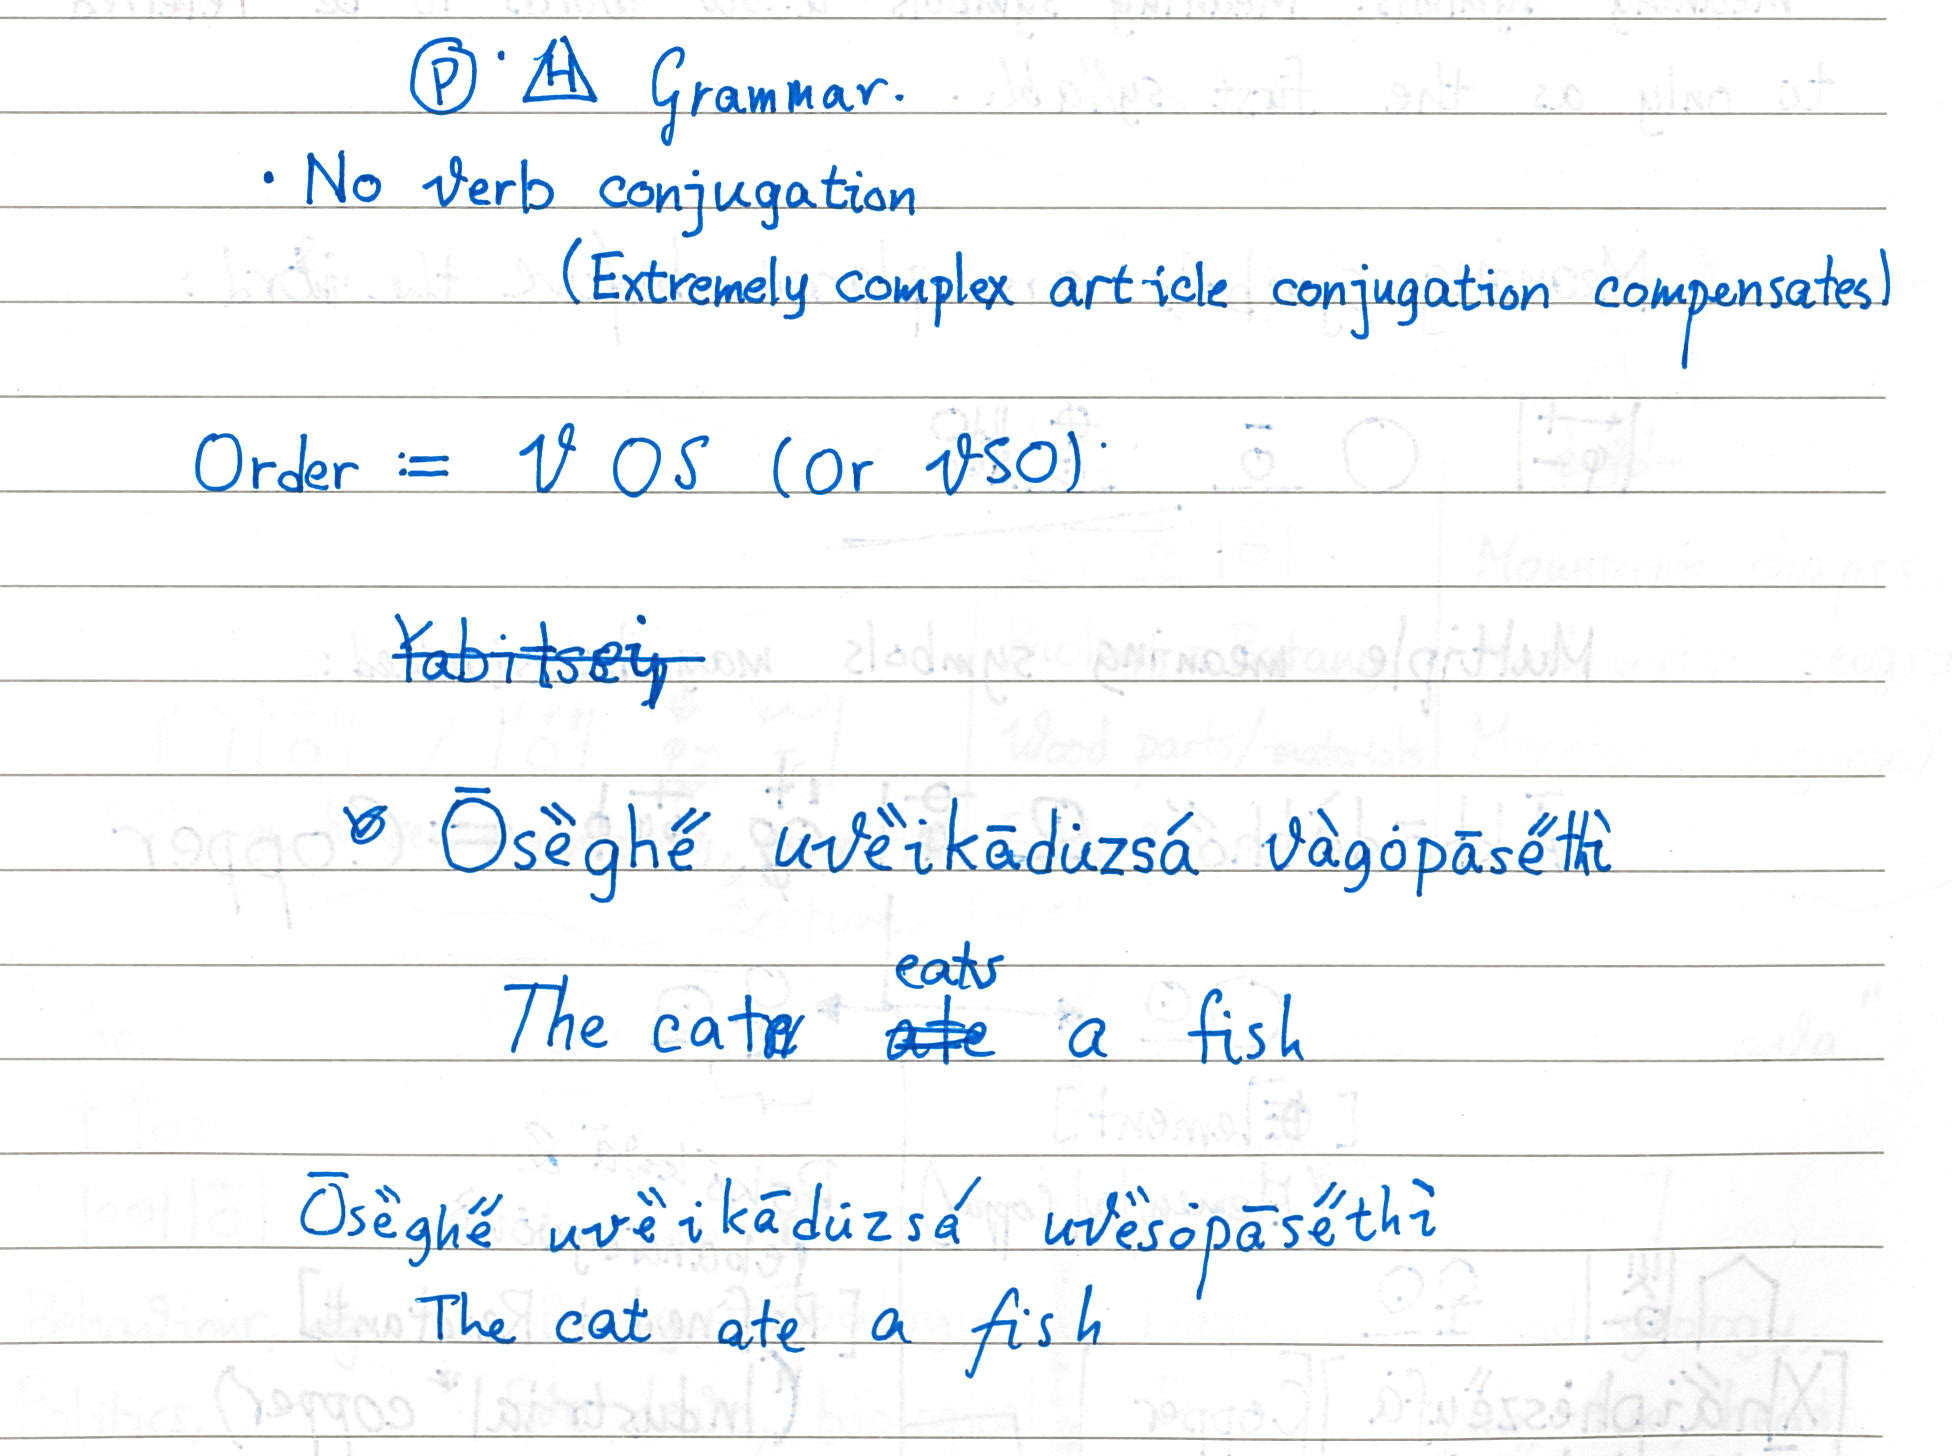 Ⓟ · H Grammar.
· No verb conjugation
(Extremely complex article conjugation compensates)
Order := VOS (Or VSO).
Ōsȅghe̋ uvȅikādu̇zsá vàgȯpāse̋thì
eats
The cat a fish
Ōsȅghe̋ uvȅikādu̇zsá uvȅsȯpāse̋thì
The cat ate a fish